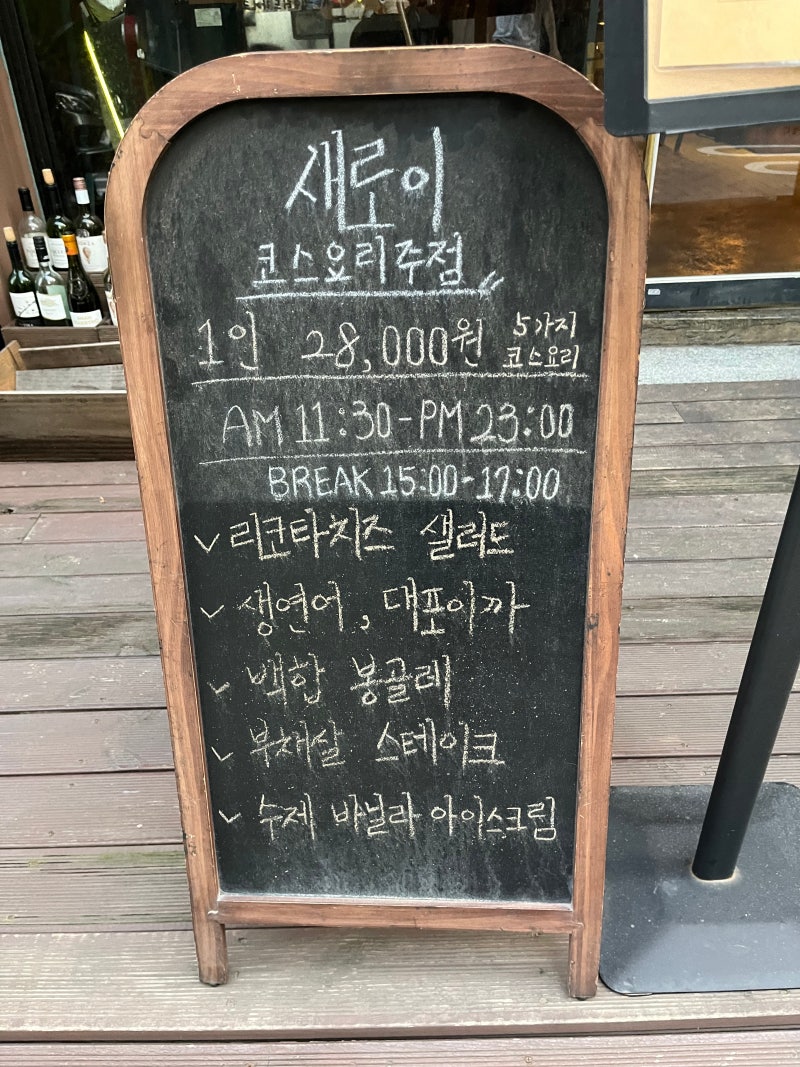 새로이
코스요리주점
1인 28,000원 5가지 코스요리
AM 11:30-PM 23:00
BREAK 15:00-17:00
리코타치즈 샐러드
생연어, 대포이까
백합 봉골레
부채살 스테이크
수제 바닐라 아이스크림